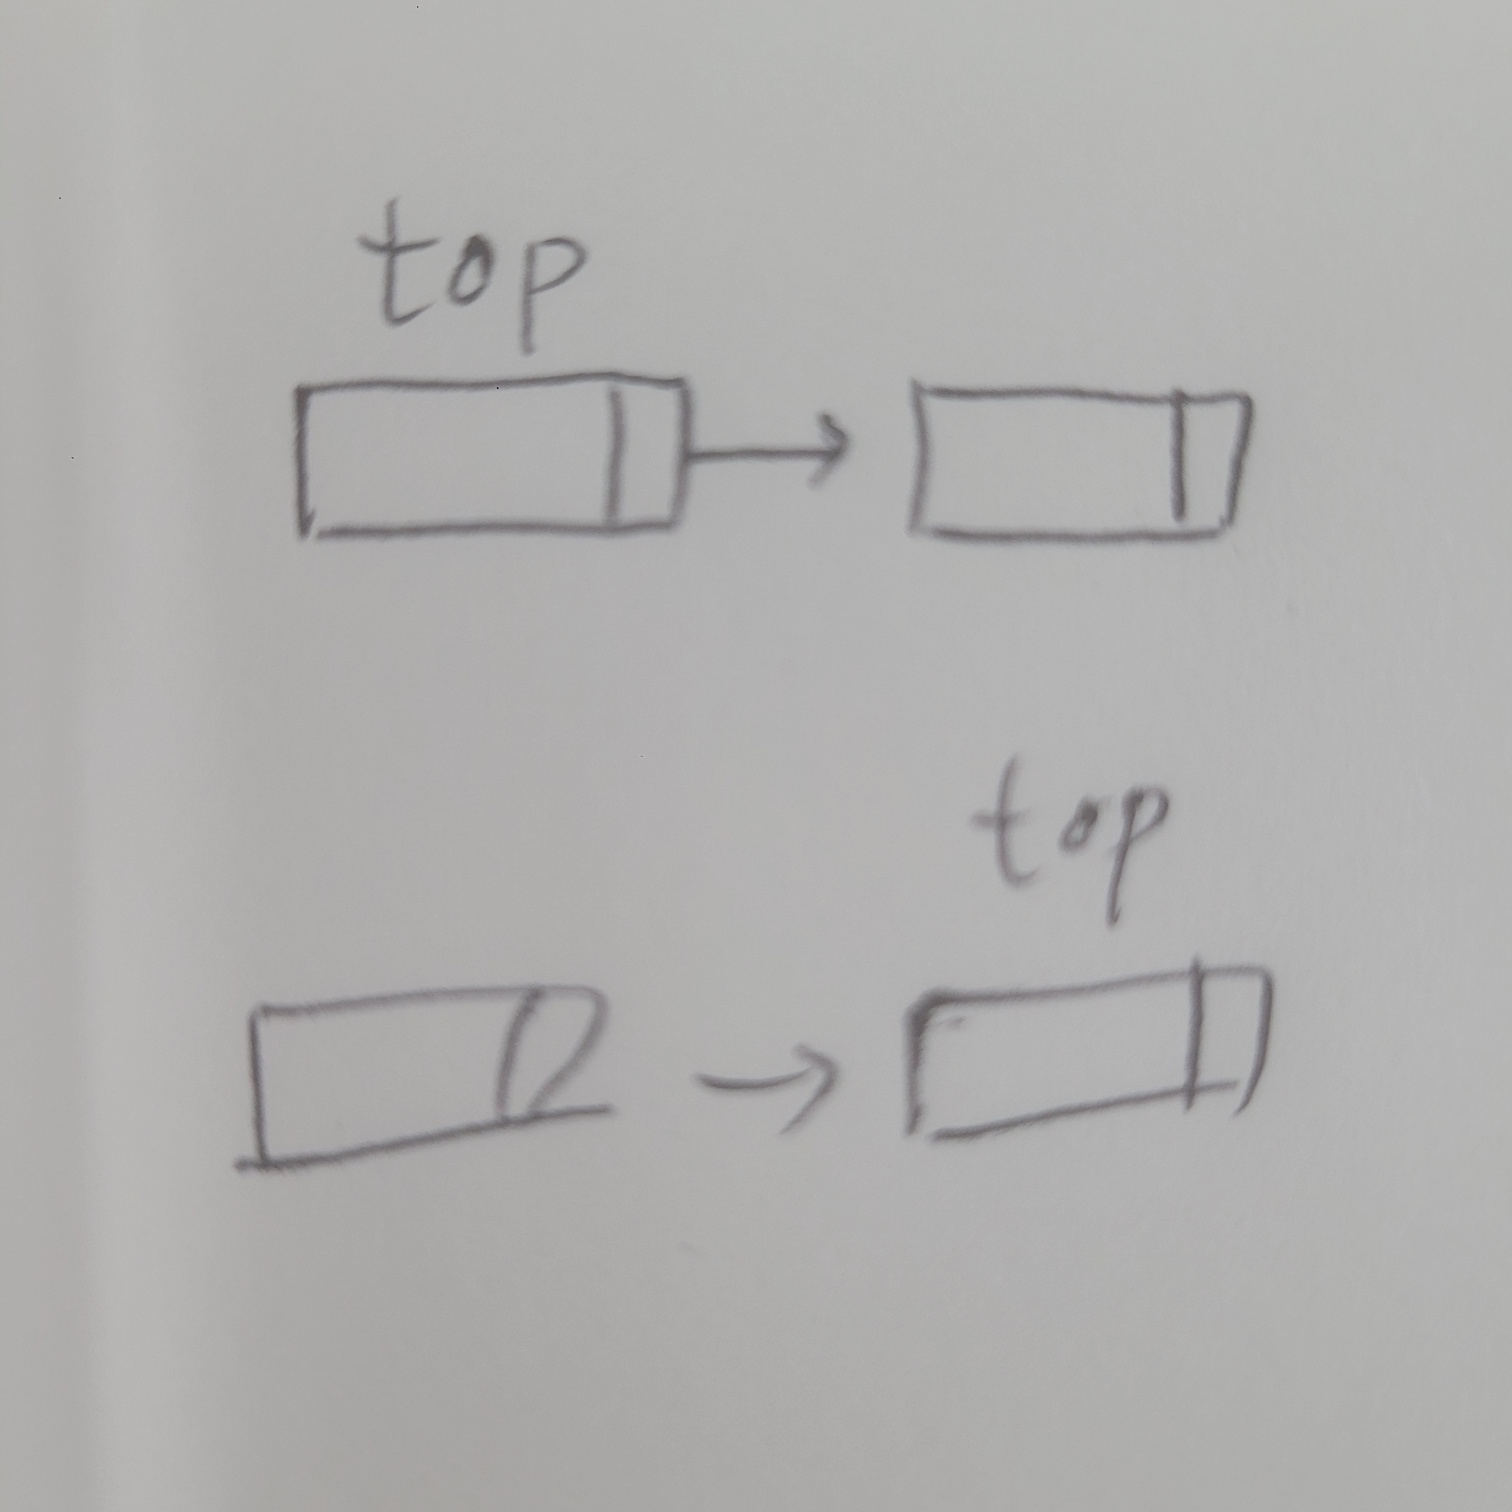 top
top